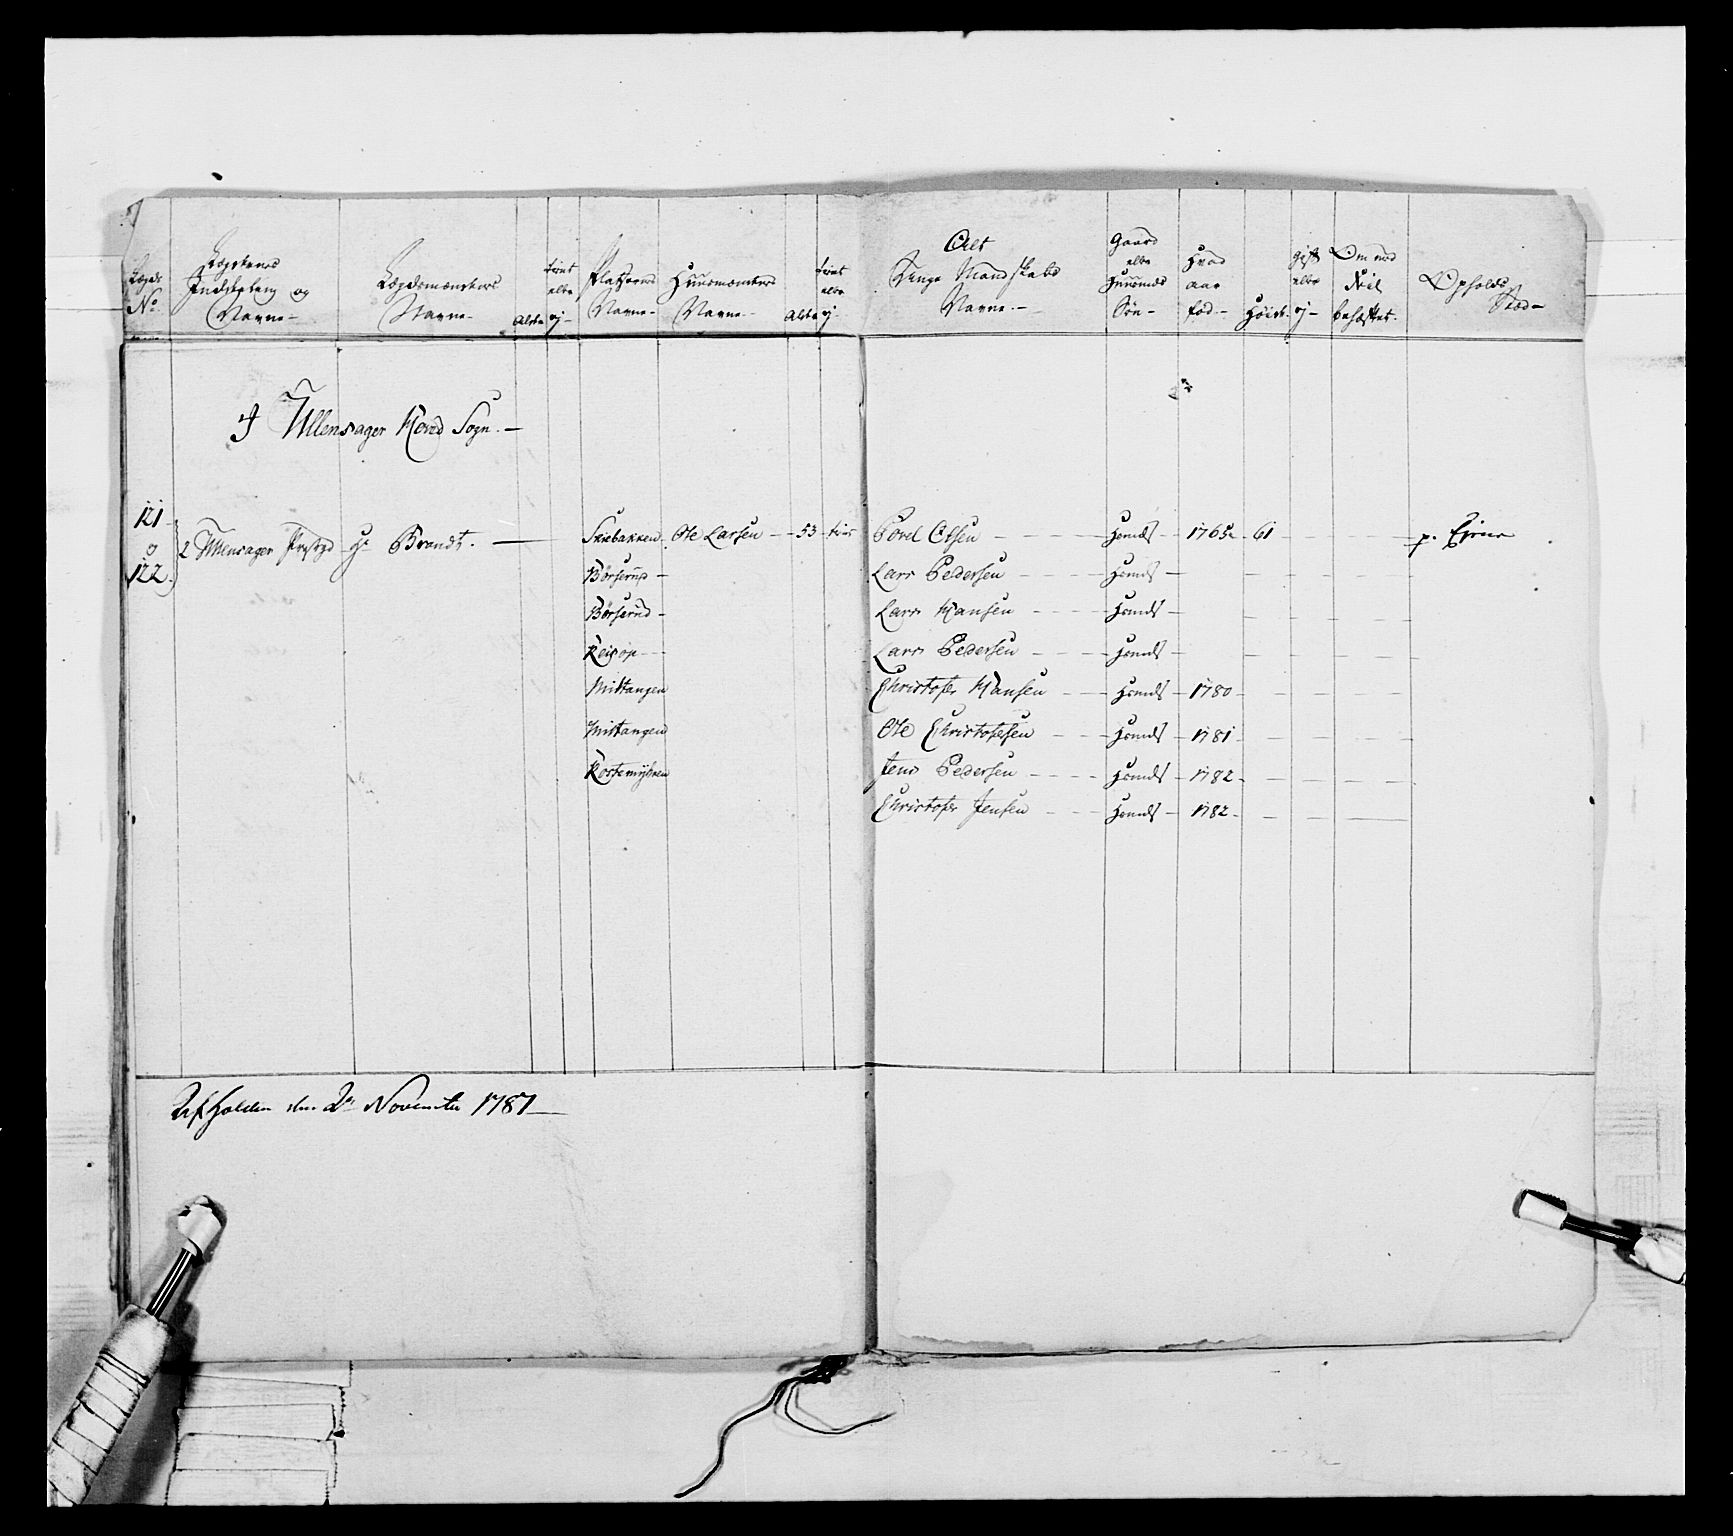 Lægds No
Lægdernes Inddeeling og Navne
Lægdsmændenes Navne
Alder
tient eller ej
Pladsernes Navne
Huusmændenes Navne
Alder
tient eller ej
Alt Unge Mandskabs Navne
Gaard eller Huusmds Søn
Hvad aar fød
Høide
Gift eller ej
Om med Feil behæftet
Opholds Stæd
Ullensager Hoved Sogn.
121 o 122. 2 Ullensager Præstgd Hr Brandt. Skiebakken Ole Larsen 53 tient Povel Olsen Hsmds 1765 61 p. Eierne
Børserud Lars Pedersen Hsmds
Børserud Lars Hansen Hsmds
Reisop Lars Pedersen Hsmds
Mistangen Christofer Hansen Hsmds 1780
Mistangen Ole Christofersen Hsmds 1781
Rossemyhren Jens Pedersen Hsmds 1782
Christofer Jensen Hsmds 1782
Afholden den 2n November 1787